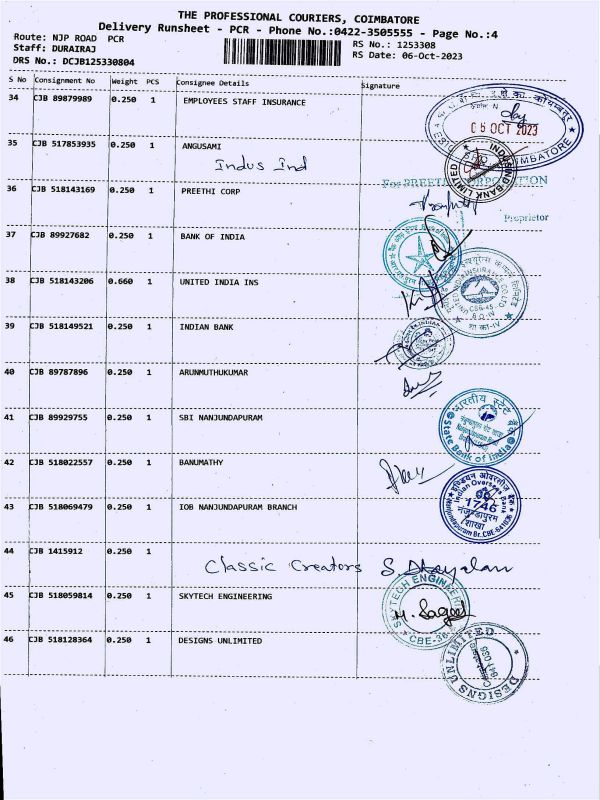 THE PROFESSIONAL COURIERS, COIMBATORE
Delivery Runsheet - PCR - Phone No.:0422-3505555 - Page No.:4
Route: NJP ROAD PCR
RS No.: 1253308
Staff: DURAIRAJ
RS Date: 06-Oct-2023
DRS No.: DCJB125330804
S No Consignment No Weight PCS Consignee Details Signature
34 CJB 89879989 0.250 1 EMPLOYEES STAFF INSURANCE
05 OCT 2023
35 CJB 517853935 0.250 1 ANGUSAMI
Indus Ind
INDUSIND BANK LIMITED
36 CJB 518143169 0.250 1 PREETHI CORP
For PREETHI CORPORATION
Proprietor
37 CJB 89927682 0.250 1 BANK OF INDIA
38 CJB 518143206 0.660 1 UNITED INDIA INS
39 CJB 518149521 0.250 1 INDIAN BANK
40 CJB 89787896 0.250 1 ARUNMUTHUKUMAR
41 CJB 89929755 0.250 1 SBI NANJUNDAPURAM
भारतीय स्टेट बैंक
State Bank of India
42 CJB 518022557 0.250 1 BANUMATHY
43 CJB 518069479 0.250 1 IOB NANJUNDAPURAM BRANCH
इण्डियन ओवरसीज़ बैंक
Indian Overseas Bank
1746
नंजुण्डापुरम
शाखा
Nanjundapuram Br. CBE-641036
44 CJB 1415912 0.250 1
Classic Creators S. Dhayalan
45 CJB 518059814 0.250 1 SKYTECH ENGINEERING
SKYTECH ENGINEERING
CBE-36
46 CJB 518128364 0.250 1 DESIGNS UNLIMITED
DESIGNS UNLIMITED
Coimbatore
641 036